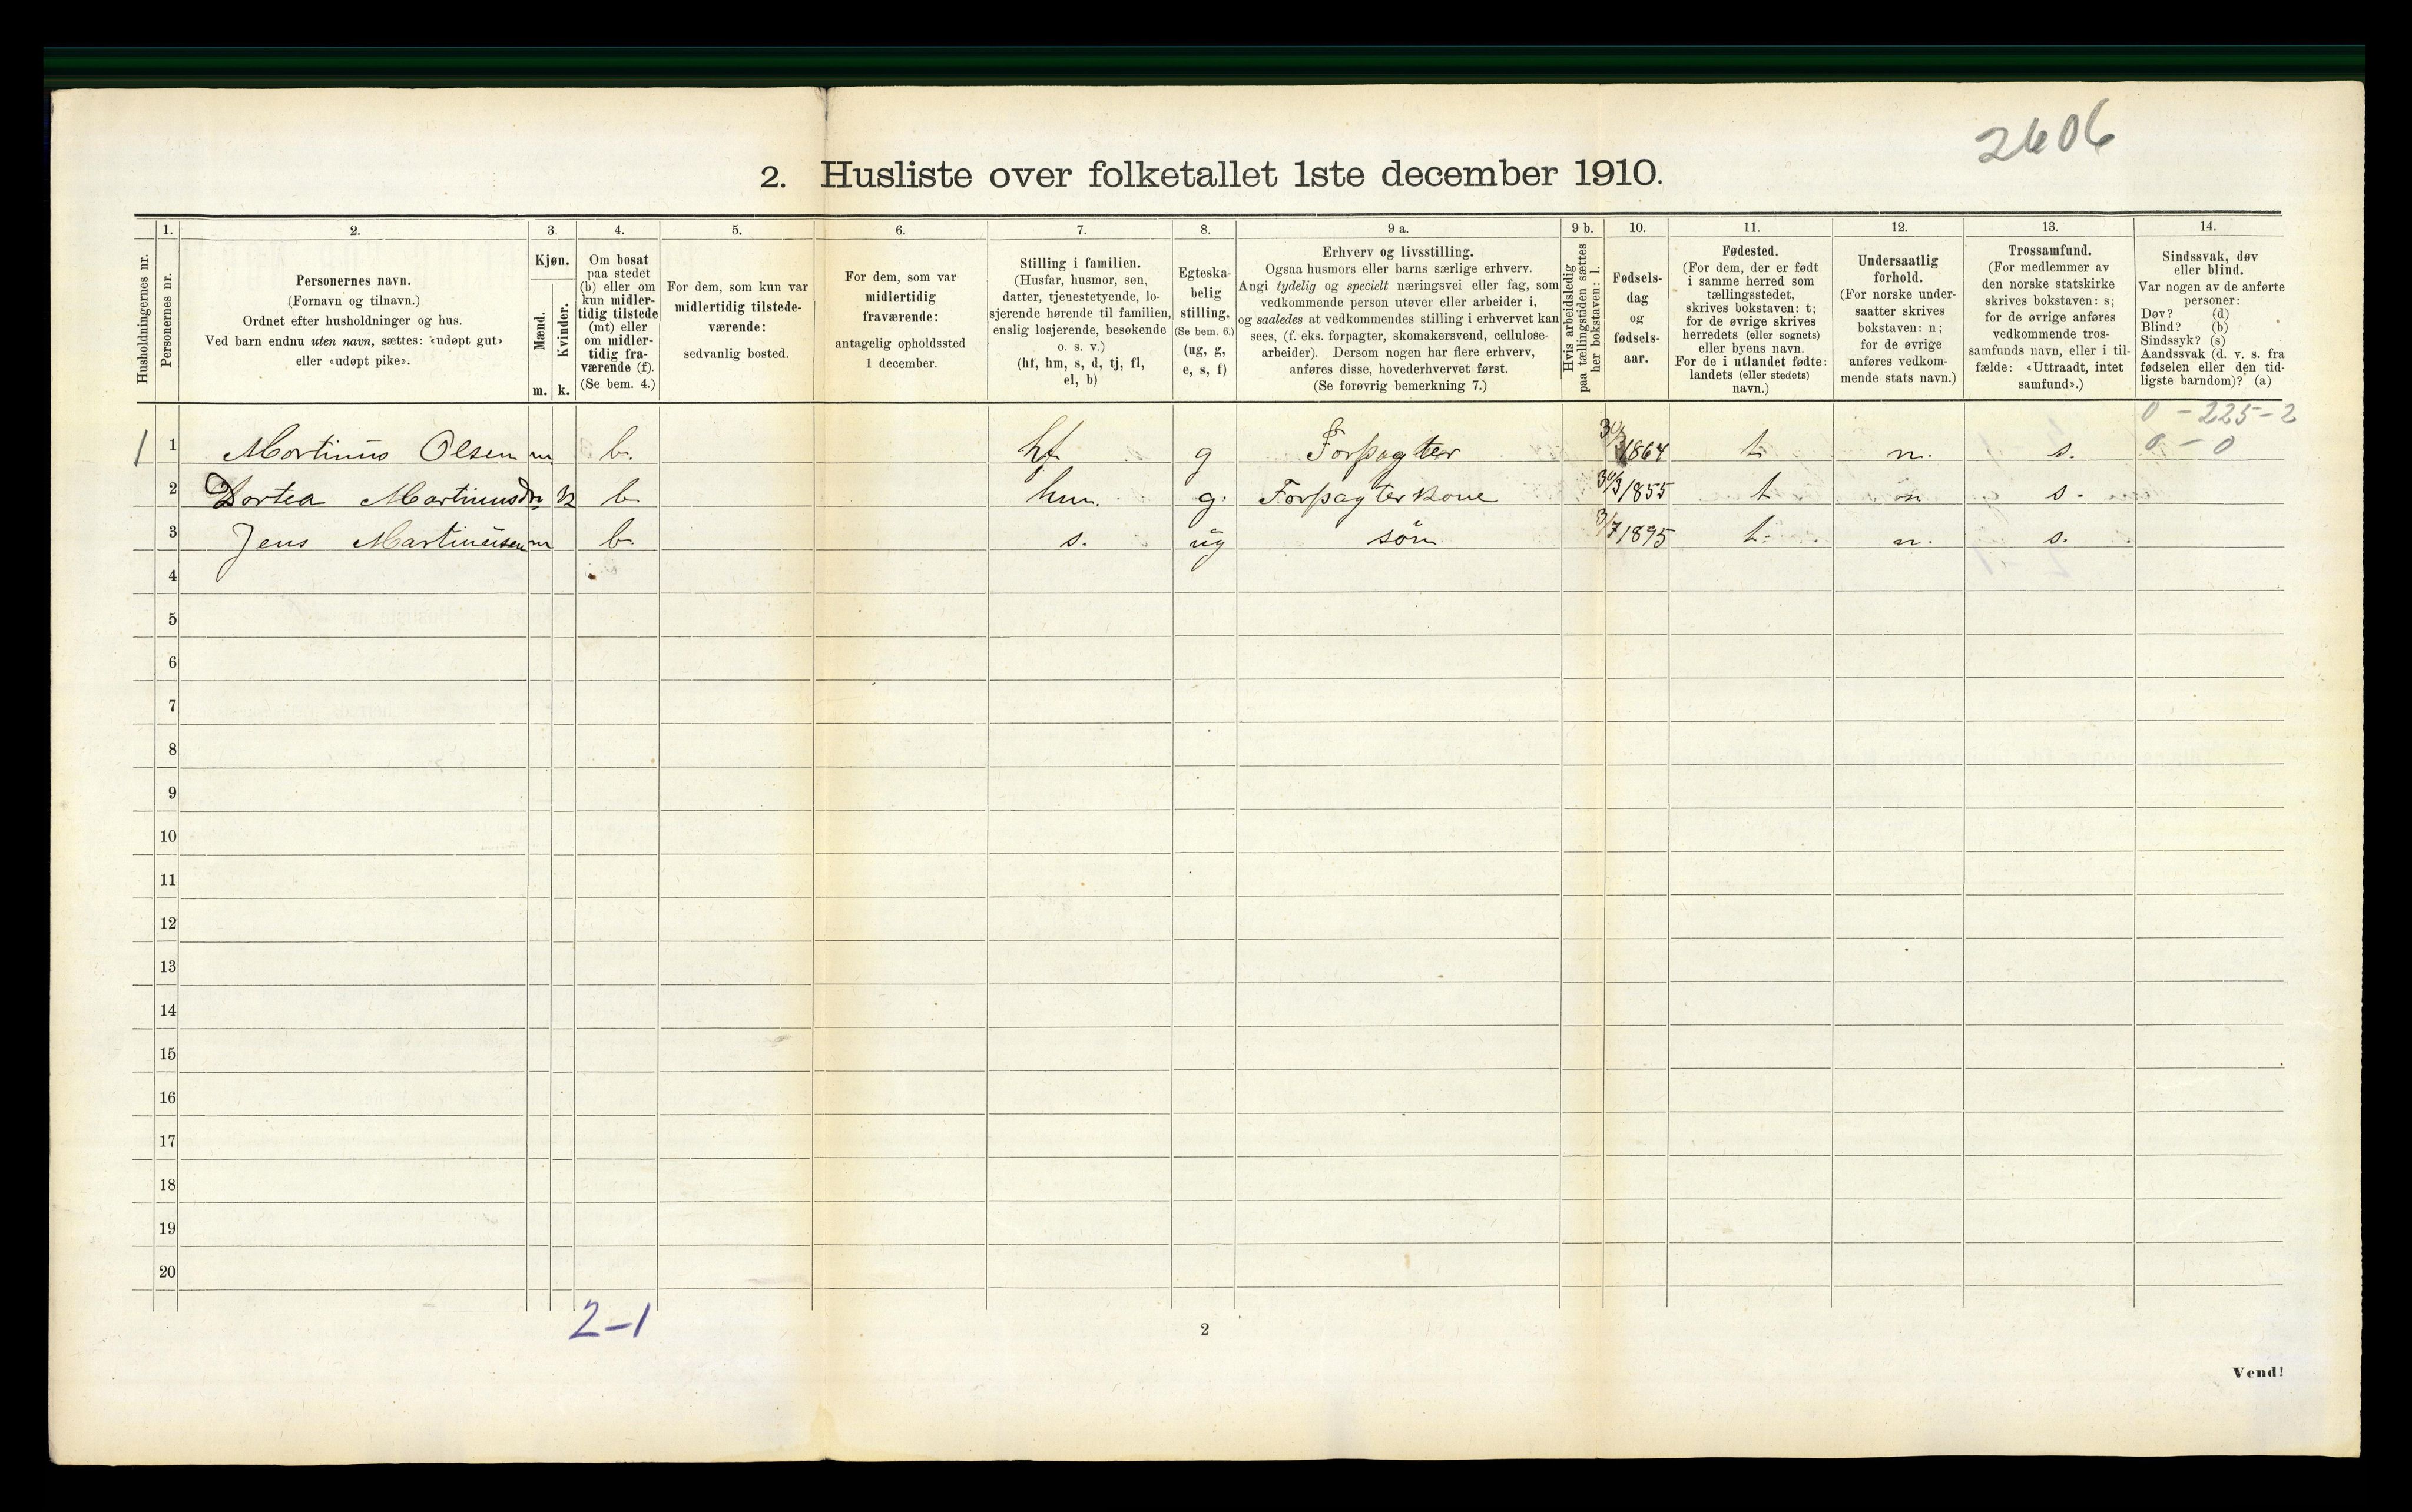 2606
2. Husliste over folketallet 1ste december 1910.
1. 2. 3. 4. 5. 6. 7. 8. 9 a. 9 b. 10. 11. 12. 13. 14.
Husholdningernes nr.
Personernes nr.
Personernes navn.
(Fornavn og tilnavn.)
Ordnet efter husholdninger og hus.
Ved barn endnu uten navn, sættes: «udøpt gut»
eller «udøpt pike».
Kjøn.
Mænd. Kvinder.
m. k.
Om bosat
paa stedet
(b) eller om
kun midler-
tidig tilstede
(mt) eller
om midler-
tidig fra-
værende (f).
(Se bem. 4.)
For dem, som kun var
midlertidig tilstede-
værende:
sedvanlig bosted.
For dem, som var
midlertidig
fraværende:
antagelig opholdssted
1 december.
Stilling i familien.
(Husfar, husmor, søn,
datter, tjenestetyende, lo-
sjerende hørende til familien,
enslig losjerende, besøkende
o. s. v.)
(hf, hm, s, d, tj, fl,
el, b)
Egteska-
belig
stilling.
(Se bem. 6.)
(ug, g,
e, s, f)
Erhverv og livsstilling.
Ogsaa husmors eller barns særlige erhverv.
Angi tydelig og specielt næringsvei eller fag, som
vedkommende person utøver eller arbeider i,
og saaledes at vedkommendes stilling i erhvervet kan
sees, (f. eks. forpagter, skomakersvend, cellulose-
arbeider). Dersom nogen har flere erhverv,
anføres disse, hovederhvervet først.
(Se forøvrig bemerkning 7.)
Hvis arbeidsledig
paa tællingstiden sættes
her bokstaven: l.
Fødsels-
dag
og
fødsels-
aar.
Fødested.
(For dem, der er født
i samme herred som
tællingsstedet,
skrives bokstaven: t;
for de øvrige skrives
herredets (eller sognets)
eller byens navn.
For de i utlandet fødte:
landets (eller stedets)
navn.)
Undersaatlig
forhold.
(For norske under-
saatter skrives
bokstaven: n;
for de øvrige
anføres vedkom-
mende stats navn.)
Trossamfund.
(For medlemmer av
den norske statskirke
skrives bokstaven: s;
for de øvrige anføres
vedkommende tros-
samfunds navn, eller i til-
fælde: «Uttraadt, intet
samfund».)
Sindssvak, døv
eller blind.
Var nogen av de anførte
personer:
Døv? (d)
Blind? (b)
Sindssyk? (s)
Aandssvak (d. v. s. fra
fødselen eller den tid-
ligste barndom)? (a)
0 - 225 - 2
1 1 Martinus Olsen m b. hf g Forpagter 1864 t n. s. 0 - 0
2 Dortea k b hm. g. Forpagterkone 30/3 1855 t n s.
3 Jens Martinusen m b. s. ug søn 3/7 1895 t. n. s.
4
5
6
7
8
9
10
11
12
13
14
15
16
17
18
19
20
2-1
2
Vend!